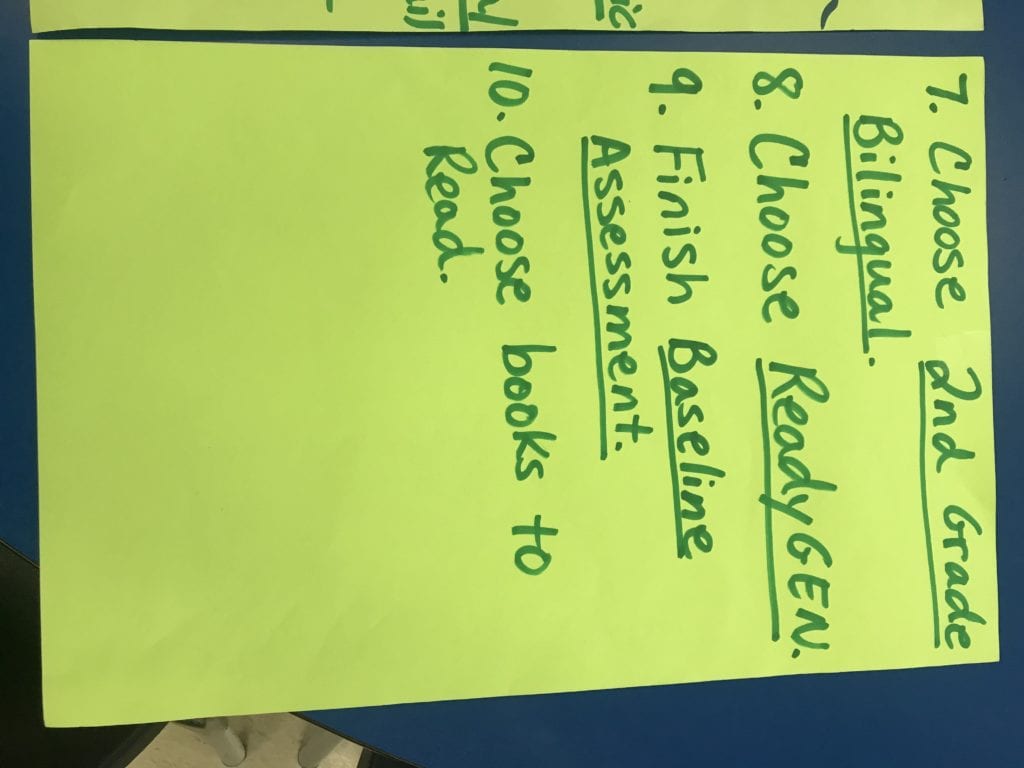 7. Choose 2nd Grade
Bilingual.
8. Choose ReadyGEN.
9. Finish Baseline
Assessment.
10. Choose books to
Read.